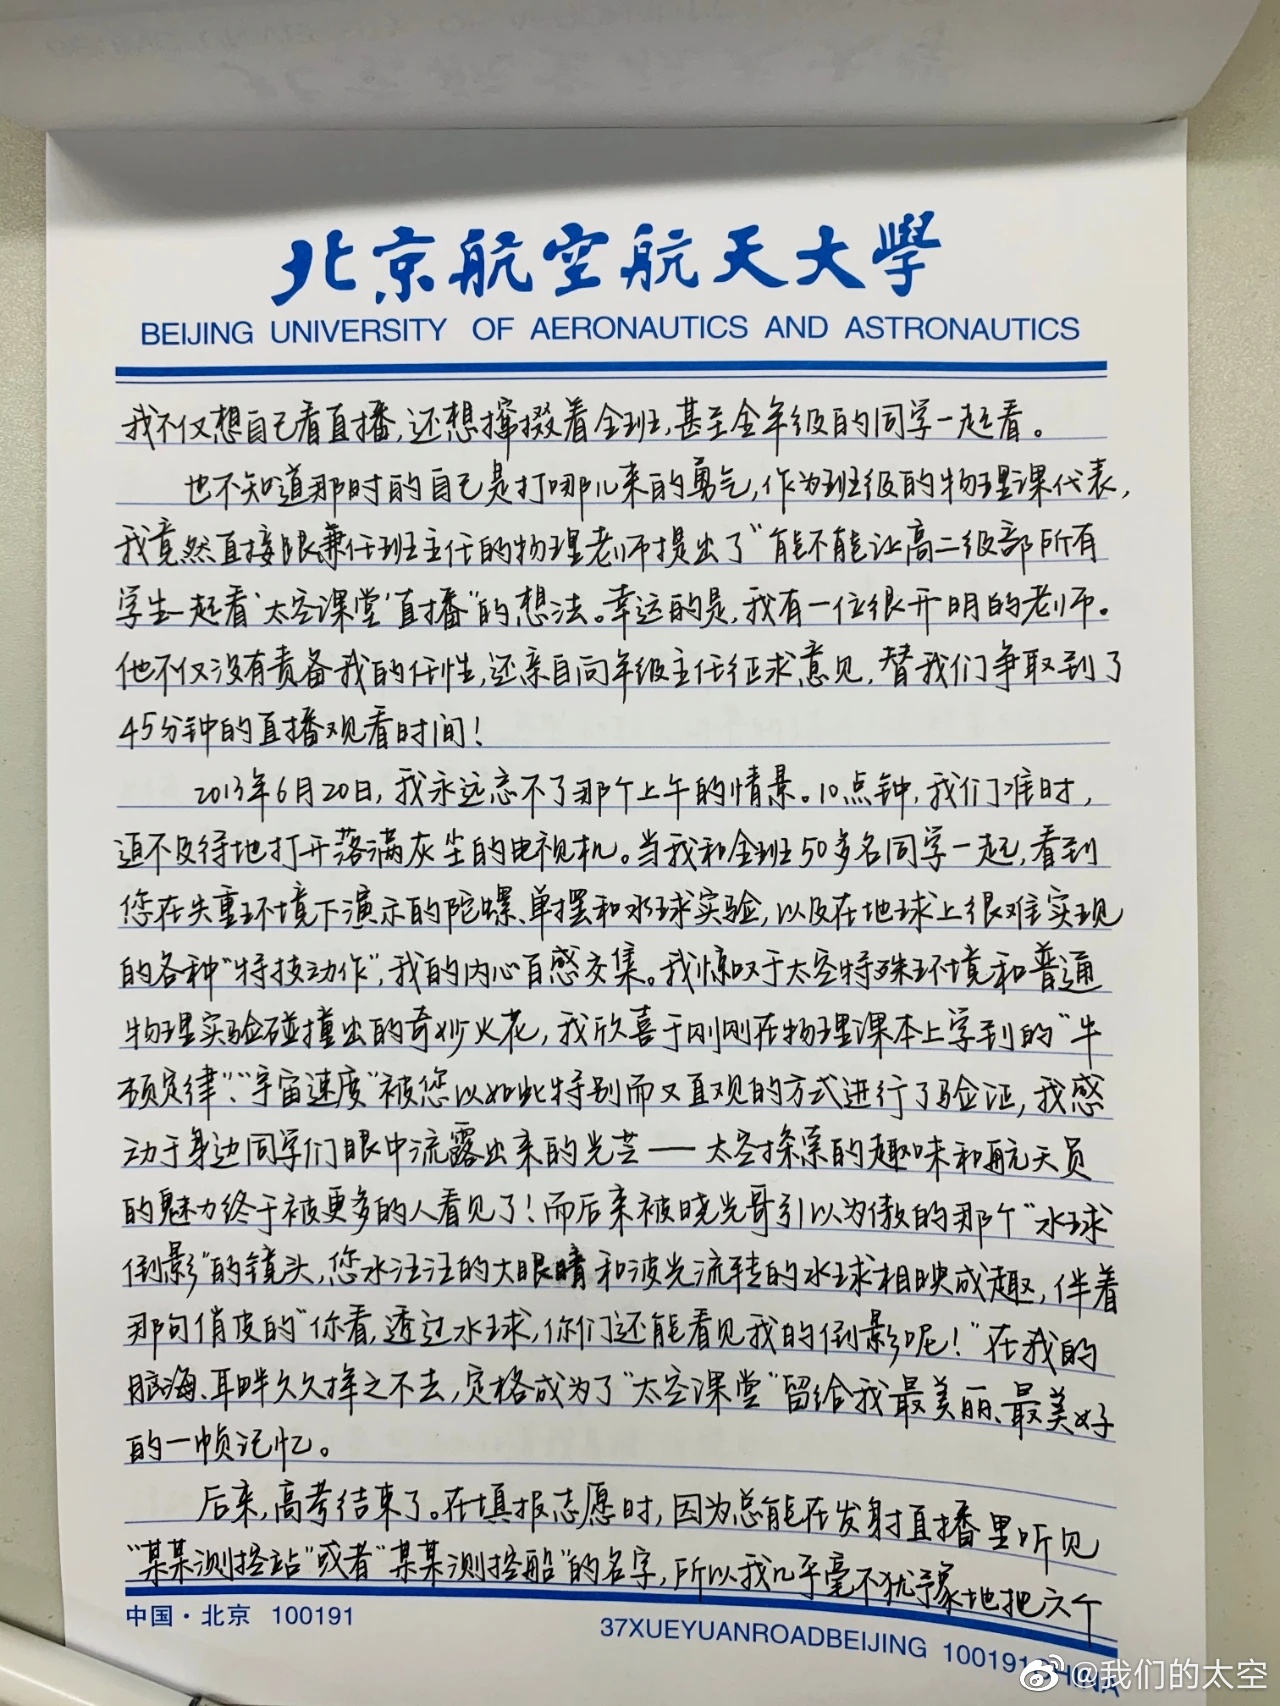 北京航空航天大學
BEIJING UNIVERSITY OF AERONAUTICS AND ASTRONAUTICS
我不仅想自己看直播,还想撺掇着全班,甚至全年级的同学一起看。
也不知道那时的自己是打哪儿来的勇气,作为班级的物理课代表,
我竟然直接跟兼任班主任的物理老师提出了“能不能让高二级部所有
学生一起看‘太空课堂’直播”的想法。幸运的是,我有一位很开明的老师。
他不仅没有责备我的任性,还亲自向年级主任征求意见,替我们争取到了
45分钟的直播观看时间!
2013年6月20日,我永远忘不了那个上午的情景。10点钟,我们准时,
迫不及待地打开落满灰尘的电视机。当我和全班50多名同学一起,看到
您在失重环境下演示的陀螺、单摆和水球实验,以及在地球上很难实现
的各种“特技动作”,我的内心百感交集。我惊叹于太空特殊环境和普通
物理实验碰撞出的奇妙火花,我欣喜于刚刚在物理课本上学到的“牛
顿定律”、“宇宙速度”被您以如此特别而又直观的方式进行了验证,我感
动于身边同学们眼中流露出来的光芒——太空探索的趣味和航天员
的魅力终于被更多的人看见了!而后来被晓光哥引以为傲的那个“水球
倒影”的镜头,您水汪汪的大眼睛和波光流转的水球相映成趣,伴着
那句俏皮的“你看,透过水球,你们还能看见我的倒影呢!”在我的
脑海、耳畔久久挥之不去,定格成为了“太空课堂”留给我最美丽、最美好
的一帧记忆。
后来,高考结束了。在填报志愿时,因为总能在发射直播里听见
“某某测控站”或者“某某测控船”的名字,所以我几乎毫不犹豫地把六个
中国·北京 100191
37XUEYUANROADBEIJING 100191 CHINA
@我们的太空